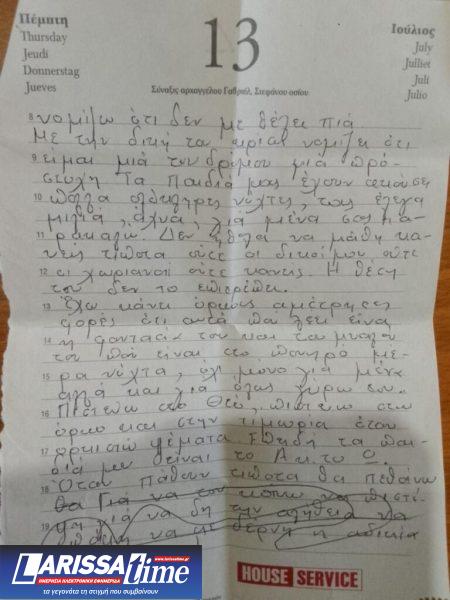 Πέμπτη
Thursday
Jeudi
Donnerstag
Jueves
13
Ιούλιος
July
Juillet
Juli
Julio
Σύναξις αρχαγγέλου Γαβριήλ, Στεφάνου οσίου
8 νομίζω ότι δεν με θέλει πιά
Με την δική του νομίζει ότι
9 είμαι μιά του δρόμου μιά πρό-
στυχη Τα Παιδιά μας έχουν ακούσει
10 πολλά ολόκληρες νύχτες, τους έλεγα
μιλιά, άχνα, για μένα σας πα-
11 ρακαλώ. Δεν ήθελα να μάθη κα-
νείς τίποτα ούτε οι δικοί μου ούτε
12 οι χωριανοί ούτε κανείς. Η θέση
του δεν το επιτρέπει.
13 Έχω κάνει όρκους αμέτρητες
φορές ότι αυτά που λέει είναι
14 η φαντασία του και του μυαλού
του που είναι στο πονηρό μέ-
15 ρα νύχτα, όχι μόνο για μένα
αλλά και για όλους γύρω του.
16 Πιστεύω στο Θεό, πιστεύω στον
όρκο και στην τιμωρία όταν
17 ορκιστώ ψέματα Επειδή τα παι-
διά μου είναι το Α κ. το Ω.
18 Όταν πάθουν τίποτα θα πεθάνω
θα Για να τον κάνω να πιστέ-
19 ψη για να δη την αλήθεια να
να με η αδικία
LARISSAtime
www.larissatime.gr
ΗΜΕΡΗΣΙΑ ΗΛΕΚΤΡΟΝΙΚΗ ΕΦΗΜΕΡΙΔΑ
τα γεγονότα τη στιγμή που συμβαίνουν
HOUSE SERVICE